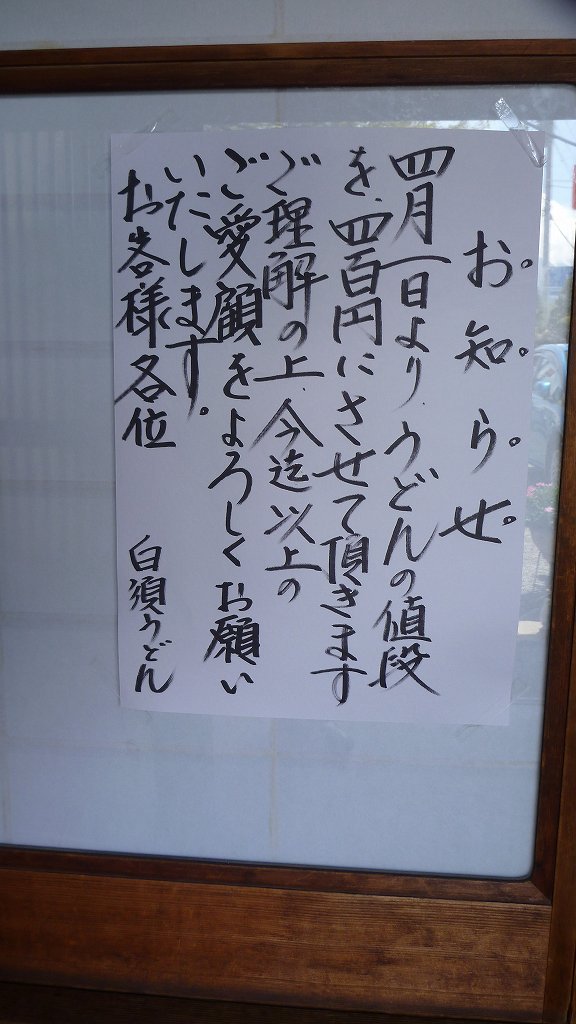 お知らせ
四月一日より、うどんの値段
を、四百円にさせて頂きます
ご理解の上、今迄以上の
ご愛顧をよろしくお願い
いたします。
お客様各位
白須うどん